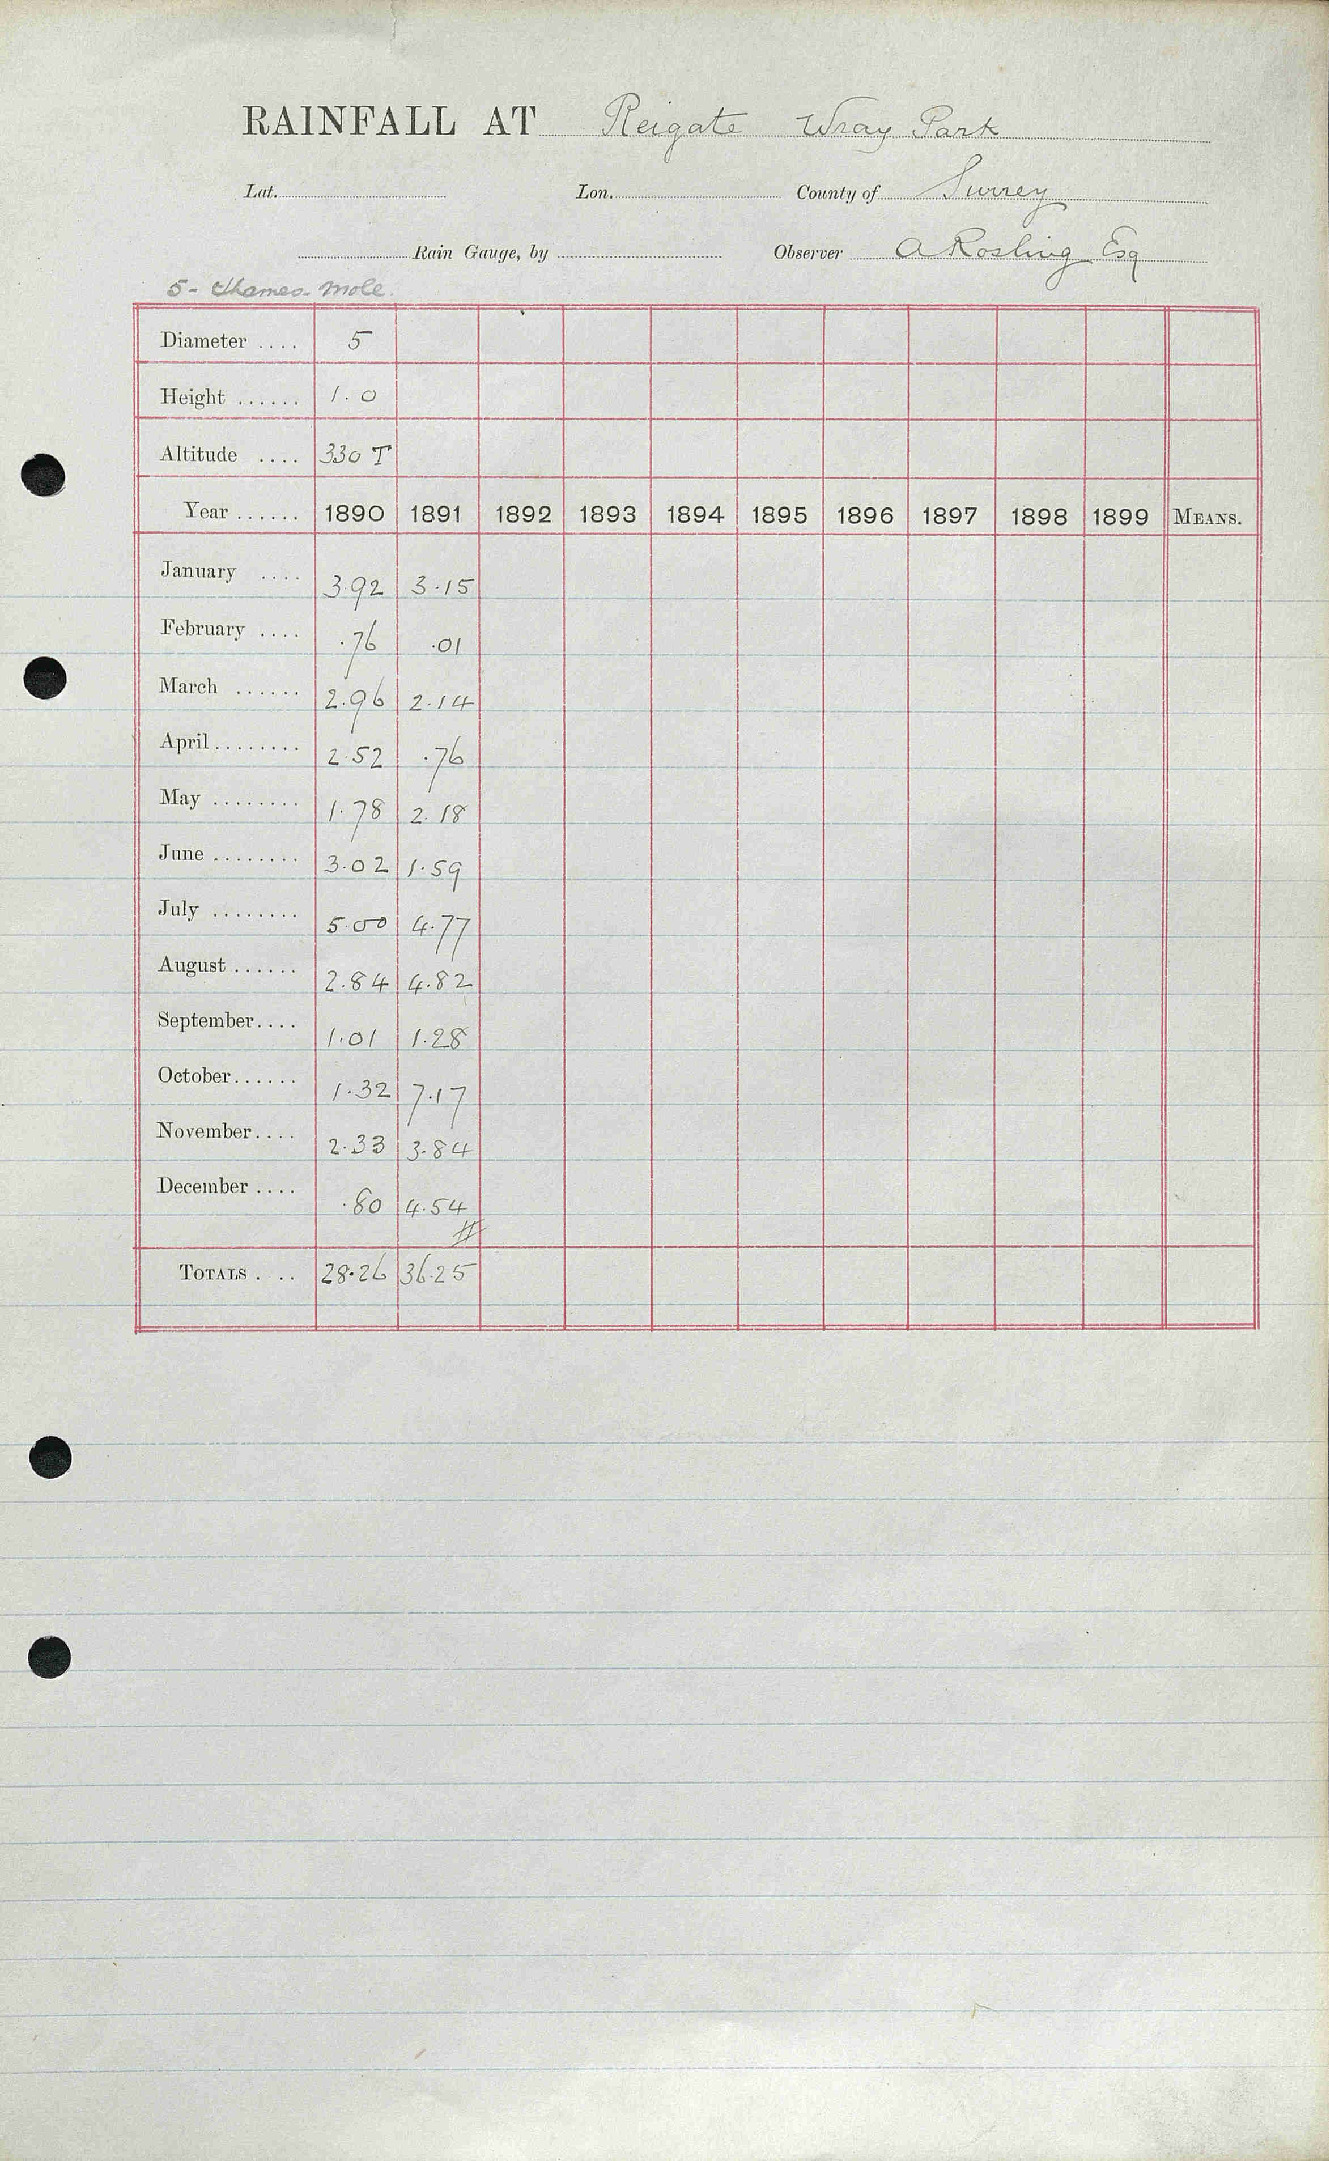 RAINFALL AT Reigate Wray Park
Lat. Lon. County of Surrey
Rain Gauge, by Observer A Rosling Esq
5 - Thames - Mole.
Diameter .... 5
Height ...... 1.0
Altitude .... 330 T
Year ...... 1890 1891 1892 1893 1894 1895 1896 1897 1898 1899 MEANS.
January .... 3.92 3.15
February .... .76 .01
March ...... 2.96 2.14
April ........ 2.52 .76
May ........ 1.78 2.18
June ........ 3.02 1.59
July ........ 5.00 4.77
August ...... 2.84 4.82
September.... 1.01 1.28
October...... 1.32 7.17
November.... 2.33 3.84
December .... .80 4.54
TOTALS .... 28.26 36.25